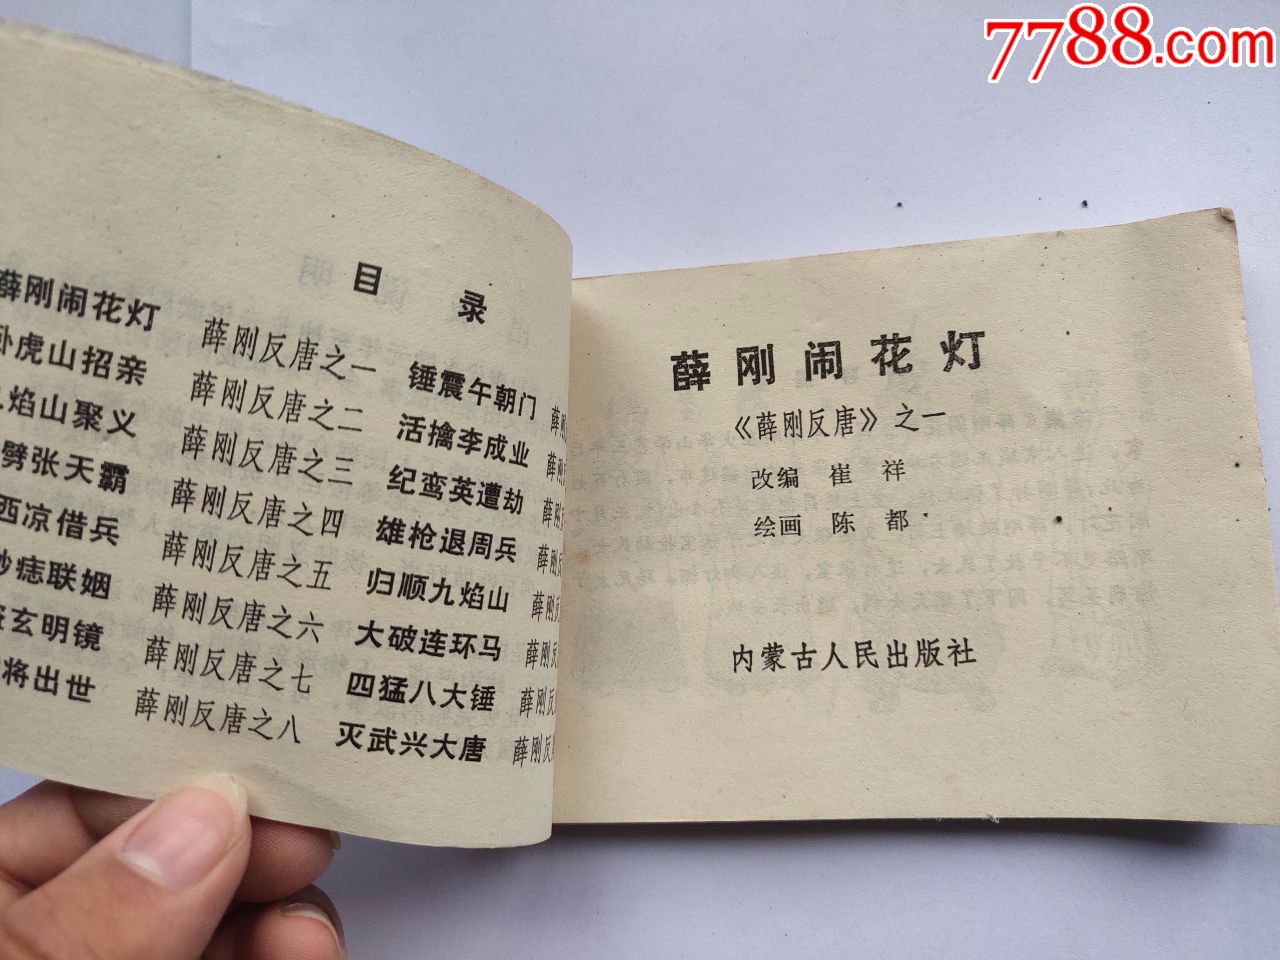 7788.com
目 录
薛刚闹花灯 薛刚反唐之一 锤震午朝门 薛刚
卧虎山招亲 薛刚反唐之二 活擒李成业 薛刚
焰山聚义 薛刚反唐之三 纪鸾英遭劫 薛刚
劈张天霸 薛刚反唐之四 雄枪退周兵 薛刚
西凉借兵 薛刚反唐之五 归顺九焰山 薛刚
痣联姻 薛刚反唐之六 大破连环马 薛刚
玄明镜 薛刚反唐之七 四猛八大锤 薛刚
将出世 薛刚反唐之八 灭武兴大唐 薛刚反
薛刚闹花灯
《薛刚反唐》之一
改编 崔 祥
绘画 陈 都
内蒙古人民出版社